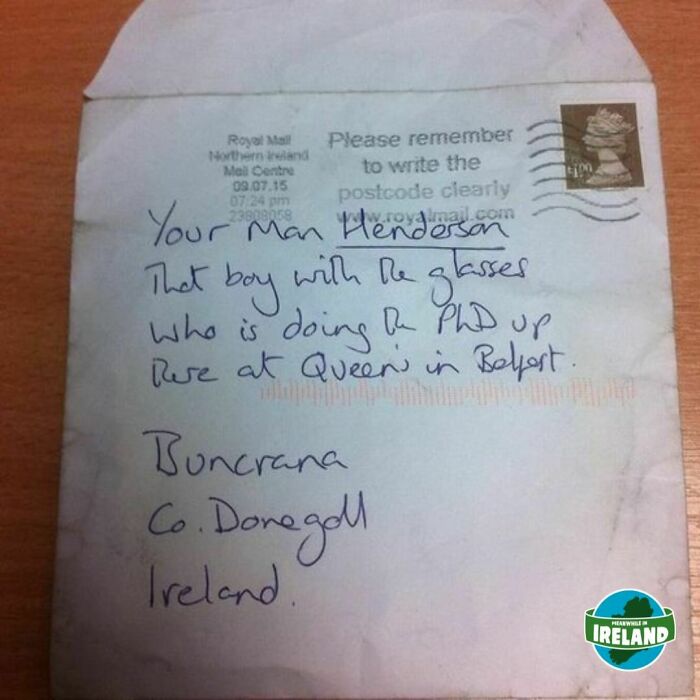 Royal Mail
Northern Ireland
Mail Centre
09.07.15
07:24 pm
23808058
Please remember
to write the
postcode clearly
www.royalmail.com
£1.00
Your Man Henderson
That boy with the glasses
who is doing the PhD up
there at Queen's in Belfast.
Buncrana
Co. Donegall
Ireland.
MEANWHILE IN
IRELAND